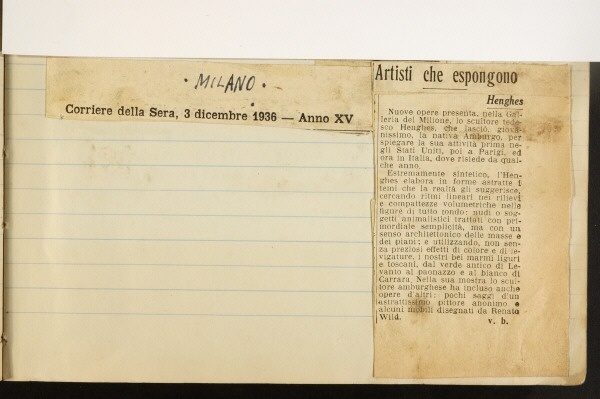 · MILANO ·
Corriere della Sera, 3 dicembre 1936 — Anno XV
Artisti che espongono
Henghes
Nuove opere presenta, nella Gal-
leria del Milione, lo scultore tede-
sco Henghes, che lasciò, giova-
nissimo, la nativa Amburgo, per
spiegare la sua attività prima ne-
gli Stati Uniti, poi a Parigi, ed
ora in Italia, dove risiede da qual-
che anno.
Estremamente sintetico, l'Hen-
ghes elabora in forme astratte i
temi che la realtà gli suggerisce,
cercando ritmi lineari nei rilievi
e compattezze volumetriche nelle
figure di tutto tondo: nudi o sog-
getti animalistici trattati con pri-
mordiale semplicità, ma con un
senso architettonico delle masse e
dei piani; e utilizzando, non sen-
za preziosi effetti di colore e di le-
vigature, i nostri bei marmi liguri
e toscani, dal verde antico di Le-
vanto al paonazzo e al bianco di
Carrara. Nella sua mostra lo scul-
tore amburghese ha incluso anche
opere d'altri: pochi saggi d'un
astrattissimo pittore anonimo e
alcuni mobili disegnati da Renato
Wild. v. b.